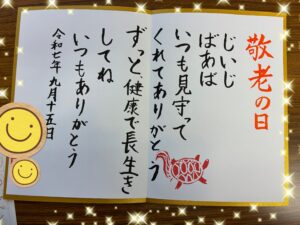 敬老の日
じいじ
ばあば
いつも見守って
くれてありがとう
ずっと、健康で長生き
してね
いつもありがとう
令和七年 九月十五日